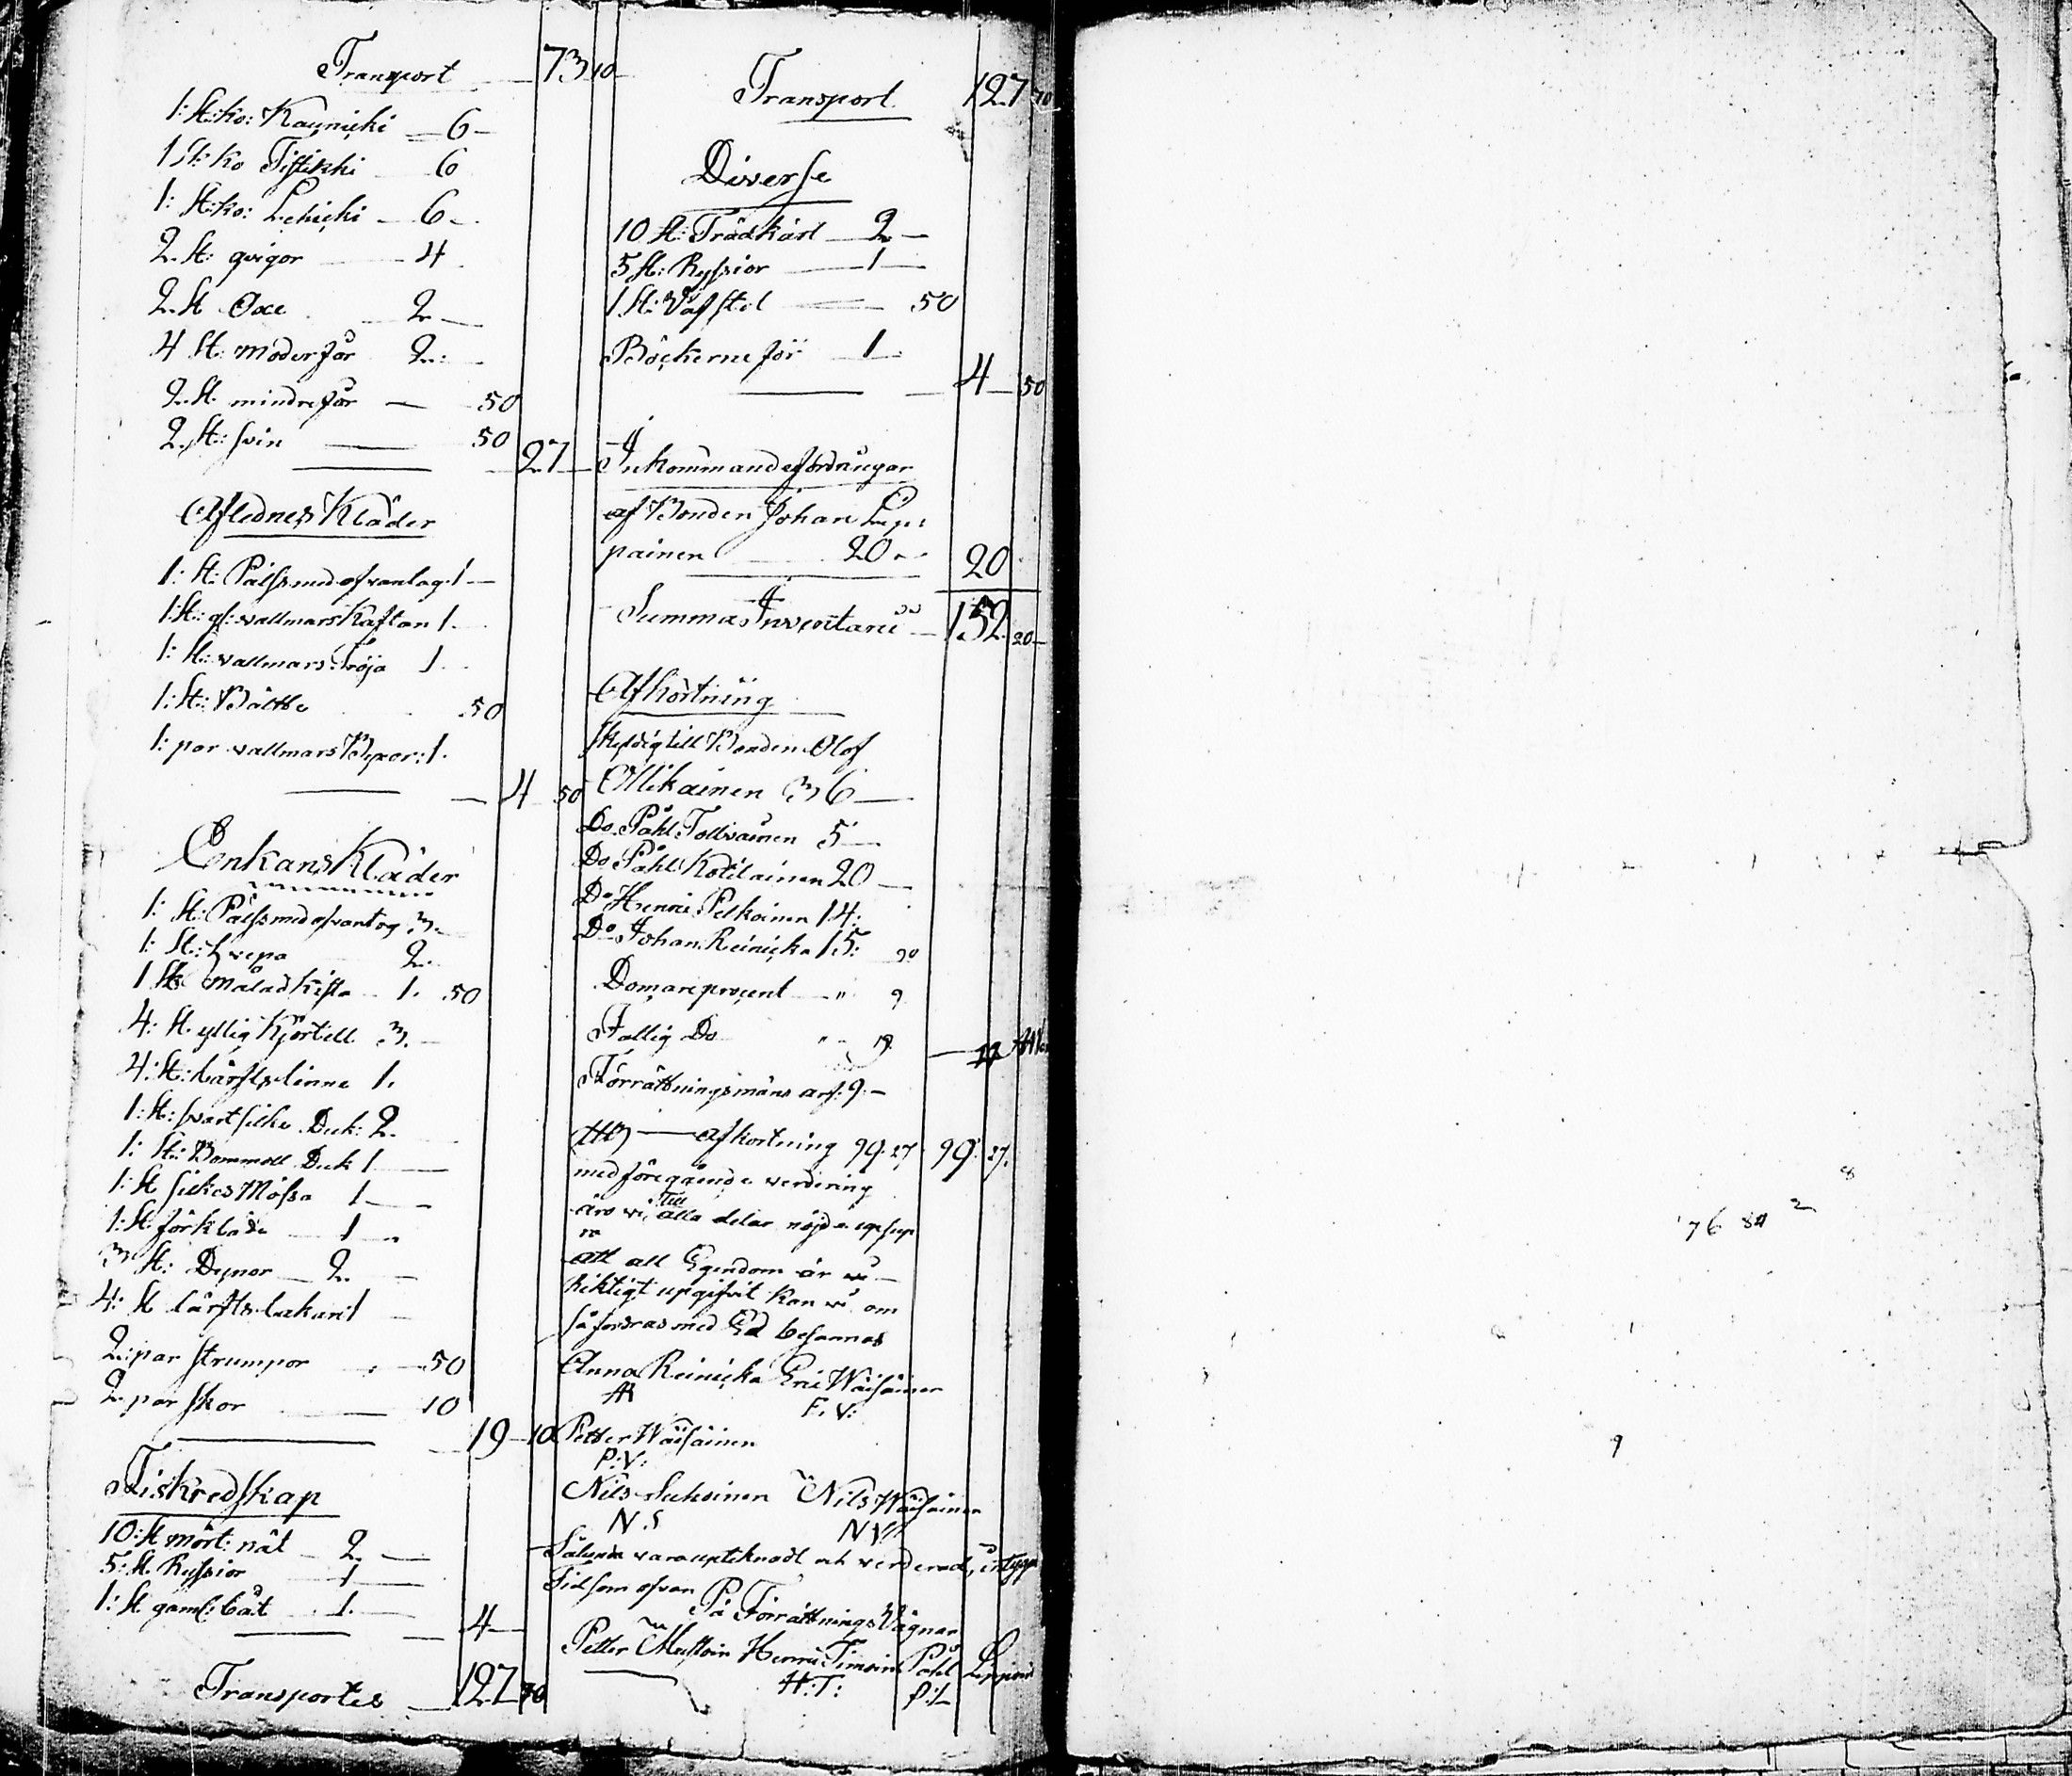 Transport 73 10
1: St: ko: Kaunicki 6
1 St: ko Tistikki 6
1: St: ko: Lehicki 6
2 St: qvigor 4
2 St Oxe 2
4 St: moderfår 2
2 St. mindre får 50
2 St: svin 50
27
Aflednes Kläder
1: St: Pälss med ofvantag 1
1: St: gl: vallmars Kaftan 1
1: St: vallmars Tröja 1
1: St: Bälte 50
1: par vallmars Byxor: 1
4 50
Enkans Kläder
1: St: Pälss med ofvantog 3
1: St: 2
1 St målad kista 1. 50
4: St yllig Kjortell 3.
4: St: lärfts linne 1.
1: St: svart silke Duk: 2
1: St: Bommoll Duk 1
1: St silkes Mössa 1
1: St. förkläde 1
3 St: Dynor 2
4: St lärfts lackan: 1
2: par strumpor 50
2 par skor 10
19 10
Fiskredskap
10: St mört: nät 2
5: St. Ryssior 1
1: St gaml: båt 1
4
Transportes 127 70
Transport 127 70
Diverse
10 St: Trädkärl 2
5 St: Ryssior 1
1 St: Väfstol 50
Böckerne för 1
4 50
Inkommande fordringar
af Bonden Johan Lap:
painen 20
20
Summa Inventarii 152 20
Afkortning
skyldig till Bonden Olof
Ollikainen 36
Do. Påhl Tolvainen 5
Do Påhl Kotilainen 20
Do Henric Pelkoinen 14:
Do Johan Reinicka 15: 20
Domareprocent " 9
Fattig Do "
Förrättningsmäns arf: 9
Afkortning 99. 27 99. 27.
med föregående verdering
äro vi Till alla delar nöjda
att all Egendom är
Riktigt upgifvit kan vi om
så fordras med Ed besannas
Anna Reinicka Eric Wäisäinen
AR E. V:
Petter Wäisäinen
P: V:
Nils Suhoinen Nils Wäisäinen
N. S N V
Sålunda vara uptecknadt och verderad, intyga
Tid som ofvan
På Förrättnings Vägnar
Petter Henric Timoin Påhl
H: T: P: L
76 2 8
9